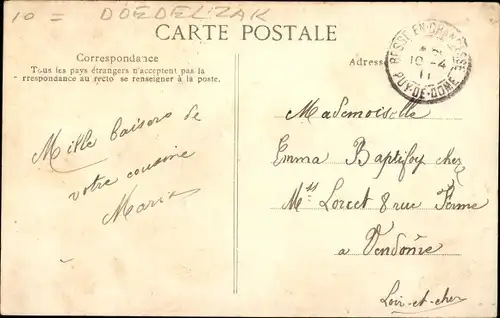 10 = DOEDELZAK
CARTE POSTALE
Correspondance
Tous les pays étrangers n'acceptent pas la
correspondance au recto se renseigner à la poste.
Mille baisers de
votre cousine
Maria
Adresse
BESSE-EN-CHANDESSE
10 -4
11
PUY-DE-DOME
Mademoiselle
Emma chez
Loreet 8 rue Ferme
a Vendôme
Loir-et-cher